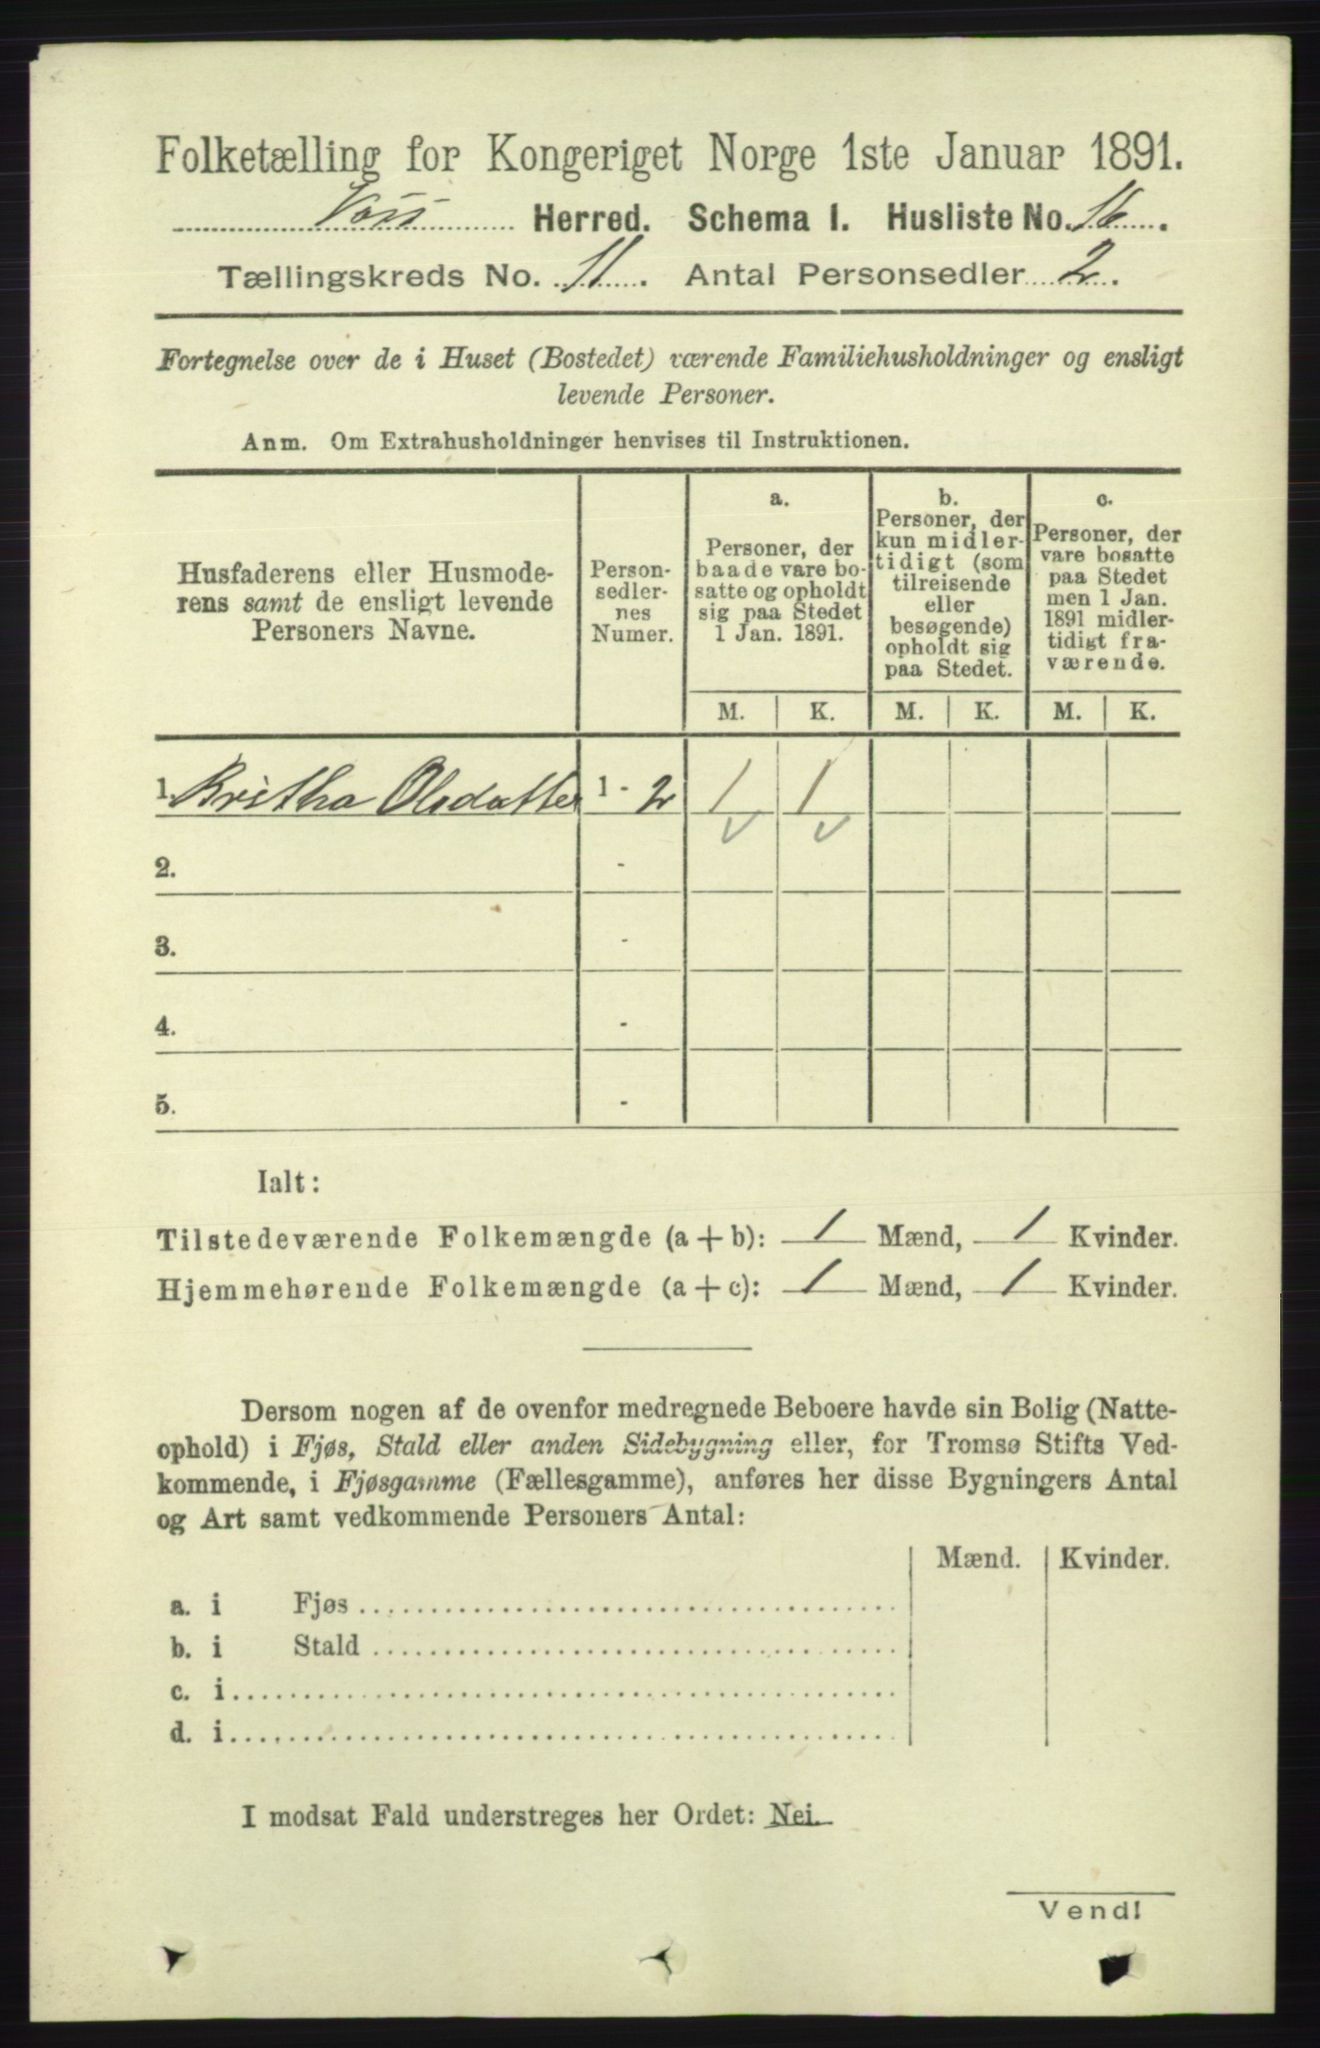 Folketælling for Kongeriget Norge 1ste Januar 1891.
Voss Herred. Schema I. Husliste No. 16.
Tællingskreds No. 11. Antal Personsedler 2.
Fortegnelse over de i Huset (Bostedet) værende Familiehusholdninger og ensligt
levende Personer.
Anm. Om Extrahusholdninger henvises til Instruktionen.
Husfaderens eller Husmode-
rens samt de ensligt levende
Personers Navne.
Person-
sedler-
nes
Numer.
a.
Personer, der
baade vare bo-
satte og opholdt
sig paa Stedet
1 Jan. 1891.
b.
Personer, der
kun midler-
tidigt (som
tilreisende
eller
besøgende)
opholdt sig
paa Stedet.
c.
Personer, der
vare bosatte
paa Stedet
men 1 Jan.
1891 midler-
tidigt fra-
værende.
M. K. M. K. M. K.
1. Britha Olsdatter 1 - 2 1 1
2. -
3. -
4. -
5. -
Ialt:
Tilstedeværende Folkemængde (a + b): 1 Mænd, 1 Kvinder.
Hjemmehørende Folkemængde (a + c): 1 Mænd, 1 Kvinder.
Dersom nogen af de ovenfor medregnede Beboere havde sin Bolig (Natte-
ophold) i Fjøs, Stald eller anden Sidebygning eller, for Tromsø Stifts Ved-
kommende, i Fjøsgamme (Fællesgamme), anføres her disse Bygningers Antal
og Art samt vedkommende Personers Antal:
Mænd. Kvinder.
a. i Fjøs
b. i Stald
c. i
d. i
I modsat Fald understreges her Ordet: Nei.
Vend!